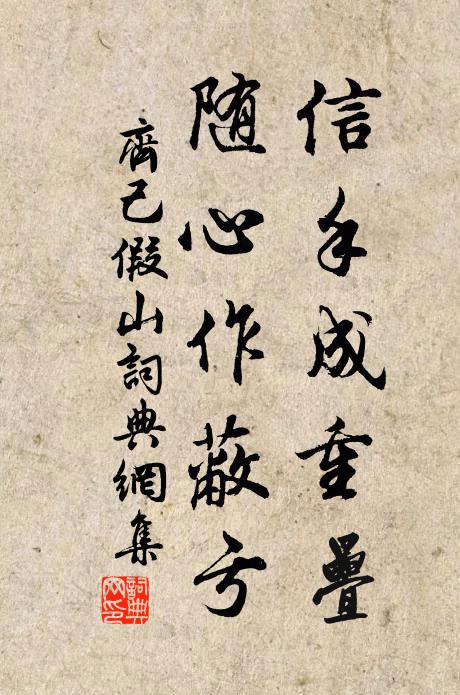 信手成重疊
随心作蔽亏
齊己假山詞典網集
詞典